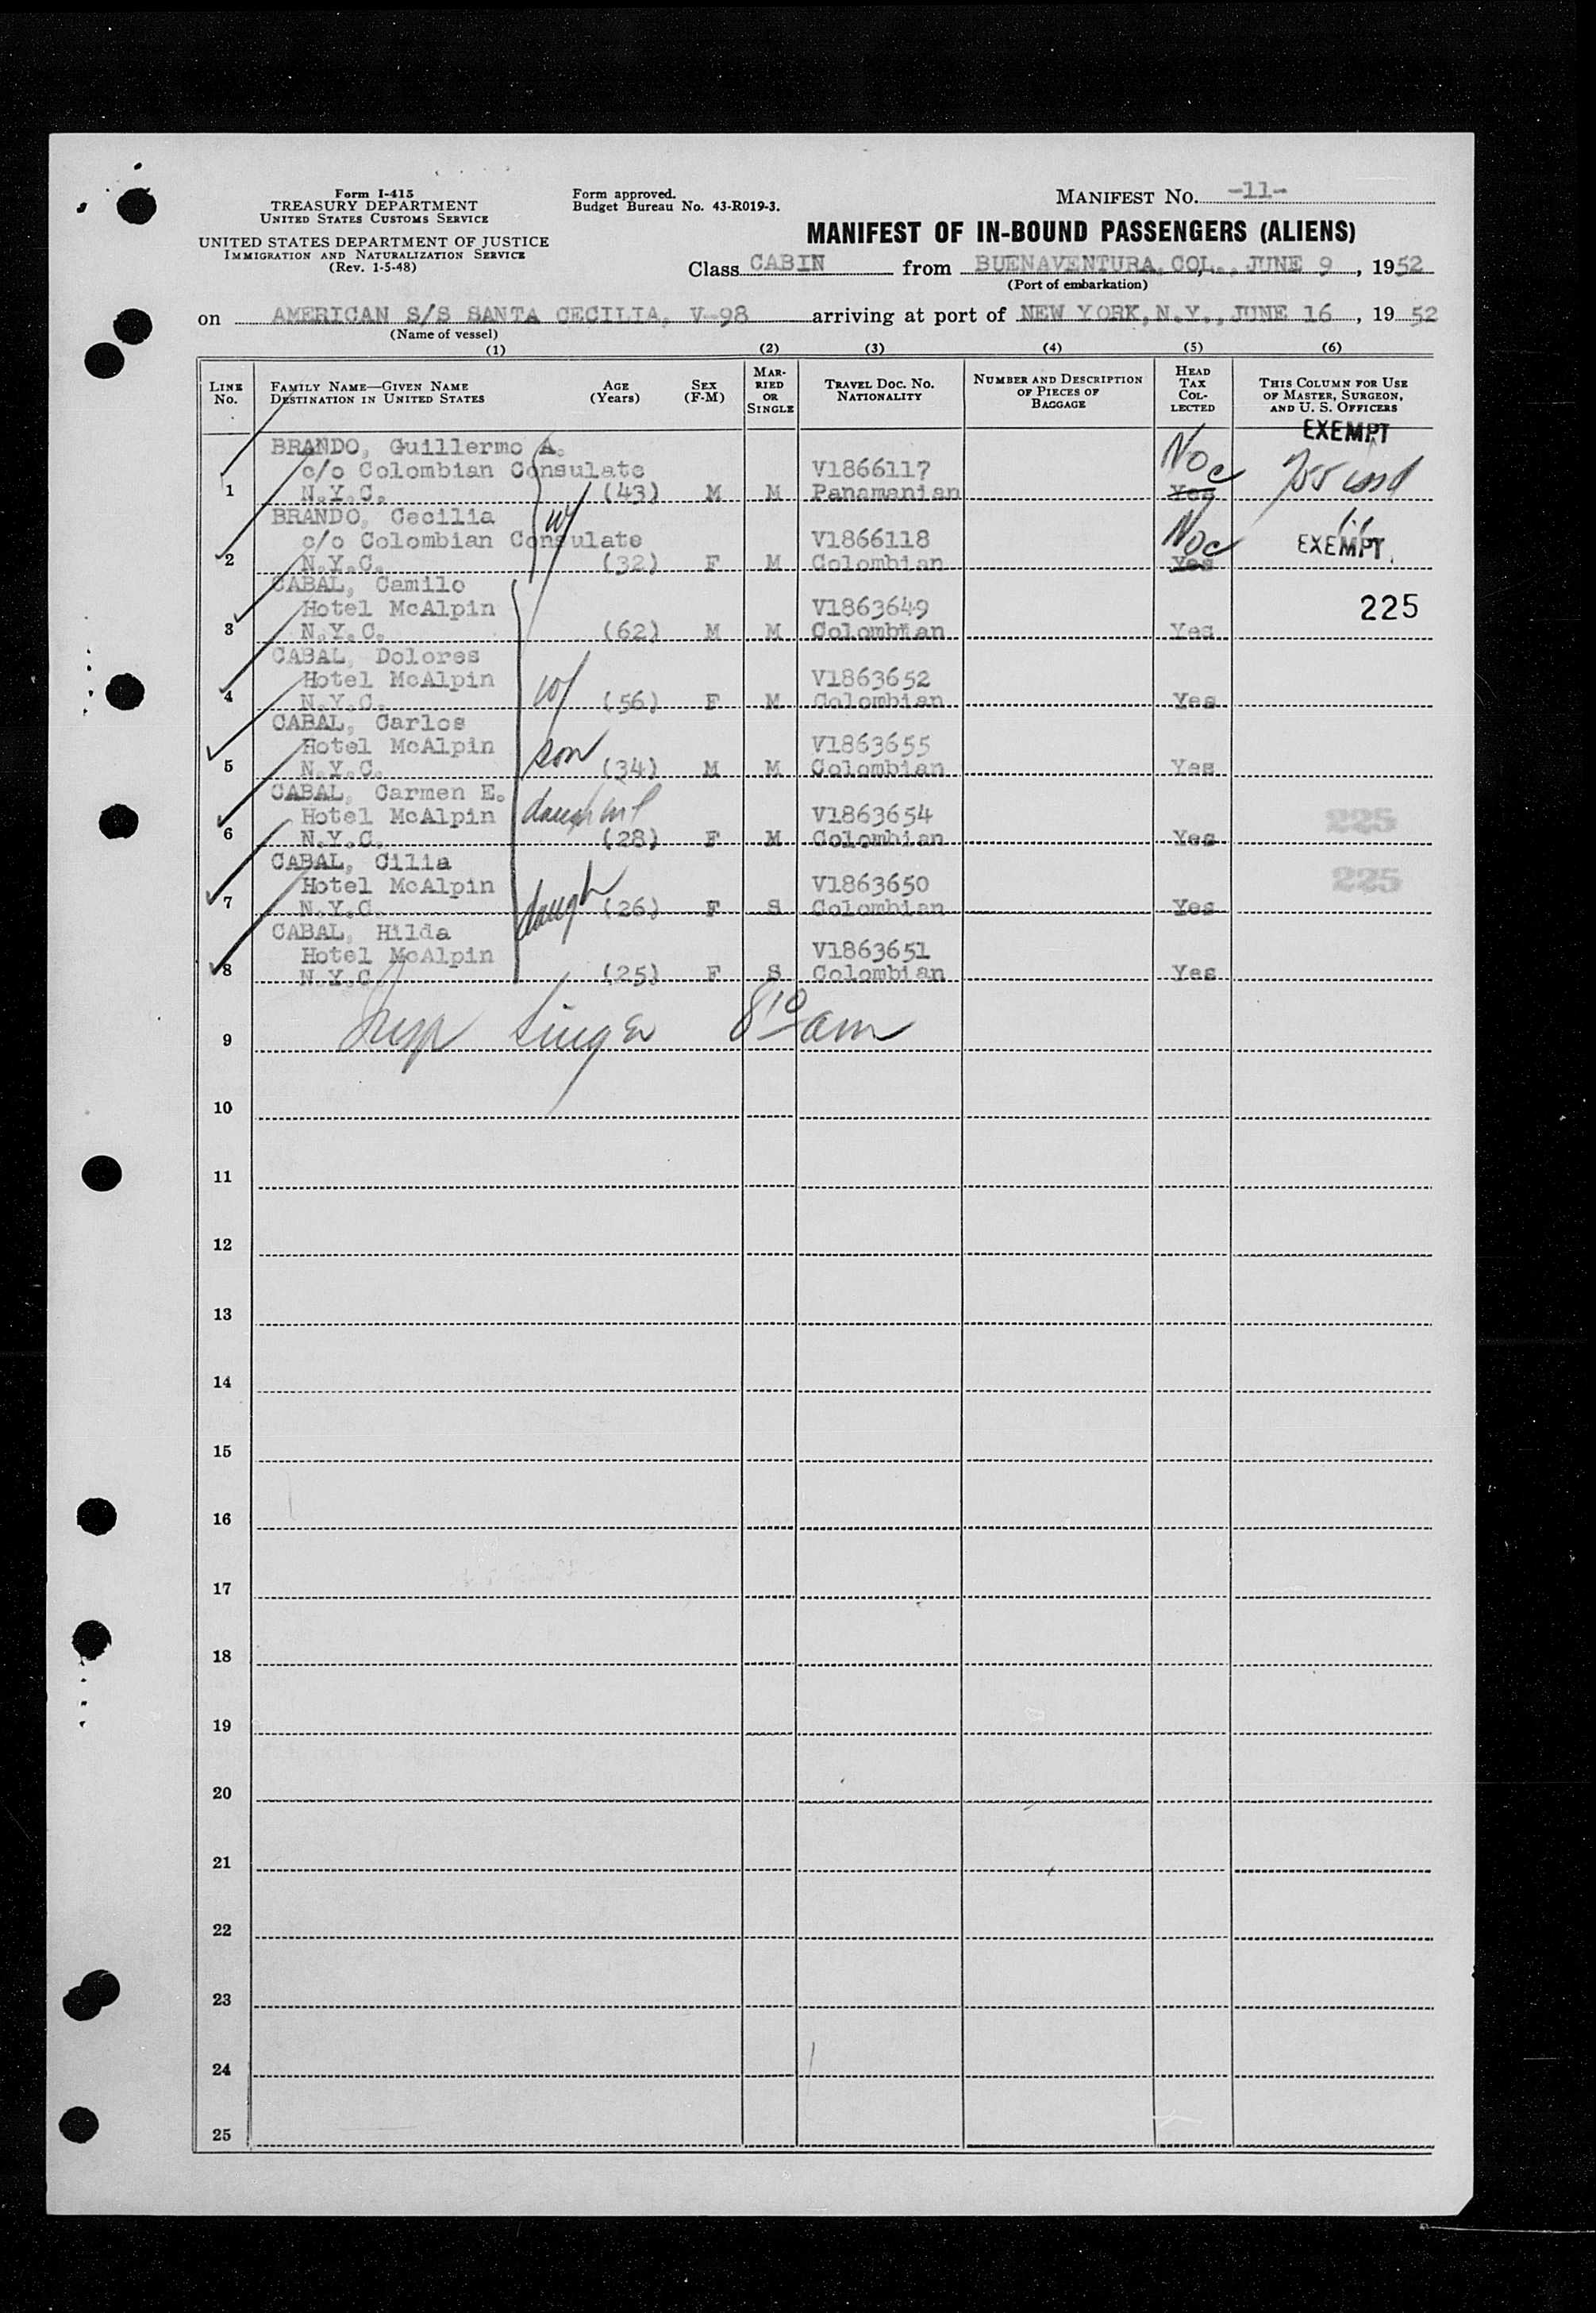 Form I-415
TREASURY DEPARTMENT
UNITED STATES CUSTOMS SERVICE
UNITED STATES DEPARTMENT OF JUSTICE
IMMIGRATION AND NATURALIZATION SERVICE
(Rev. 1-5-48)
Form approved.
Budget Bureau No. 43-R019-3.
MANIFEST NO. -11-
MANIFEST OF IN-BOUND PASSENGERS (ALIENS)
Class CABIN from BUENAVENTURA, COL., JUNE 9, 1952
(Port of embarkation)
on AMERICAN S/S SANTA CECILIA, V-98 arriving at port of NEW YORK, N.Y., JUNE 16, 1952
(Name of vessel)
(1) (2) (3) (4) (5) (6)
LINE No.
FAMILY NAME—GIVEN NAME
DESTINATION IN UNITED STATES
AGE (Years)
SEX (F-M)
MARRIED OR SINGLE
TRAVEL DOC. NO.
NATIONALITY
NUMBER AND DESCRIPTION OF PIECES OF BAGGAGE
HEAD TAX COLLECTED
THIS COLUMN FOR USE OF MASTER, SURGEON, AND U. S. OFFICERS
EXEMPT
BRANDO, Guillermo A.
c/o Colombian Consulate V1866117 No
1 N.Y.C. (43) M M Panamanian Yes
BRANDO, Cecilia
c/o Colombian Consulate w/ V1866118 No EXEMPT
2 N.Y.C. (32) F M Colombian Yes
CABAL, Camilo
Hotel McAlpin V1863649 225
3 N.Y.C. (62) M M Colombian Yes
CABAL, Dolores
Hotel McAlpin w/ V1863652
4 N.Y.C. (56) F M Colombian Yes
CABAL, Carlos
Hotel McAlpin son V1863655
5 N.Y.C. (34) M M Colombian Yes
CABAL, Carmen E.
Hotel McAlpin V1863654 225
6 N.Y.C. (28) F M Colombian Yes
CABAL, Cilia
Hotel McAlpin daugh V1863650 225
7 N.Y.C. (26) F S Colombian Yes
CABAL, Hilda
Hotel McAlpin V1863651
8 N.Y.C. (25) F S Colombian Yes
9 Insp Singer 810 am
10
11
12
13
14
15
16
17
18
19
20
21
22
23
24
25